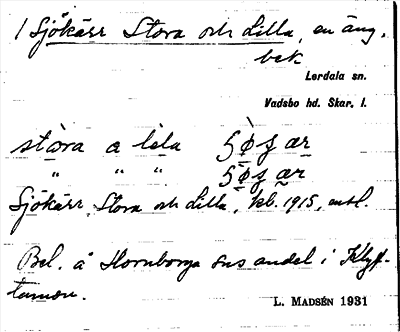 / Sjökärr Stora och Lilla, en äng.
bek
Lerdala sn.
Vadsbo hd. Skar. l.
stòra a lila
" " "
Sjökärr, Stora och Lilla, kb. 1915, entl.
Bel. å Hornborga sns andel i Klyf-
tamon.
L. MADSÉN 1931